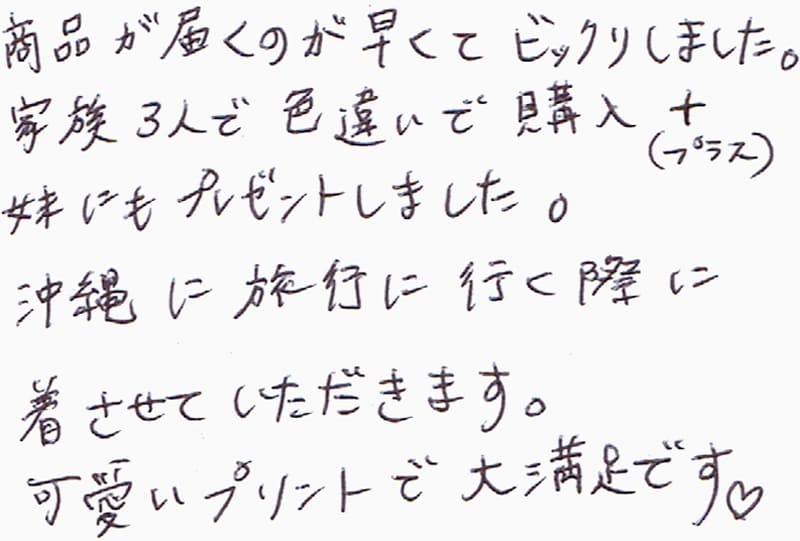 商品が届くのが早くてビックリしました。
家族3人で色違いで購入 +
(プラス)
妹にもプレゼントしました。
沖縄に旅行に行く際に
着させていただきます。
可愛いプリントで大満足です♡